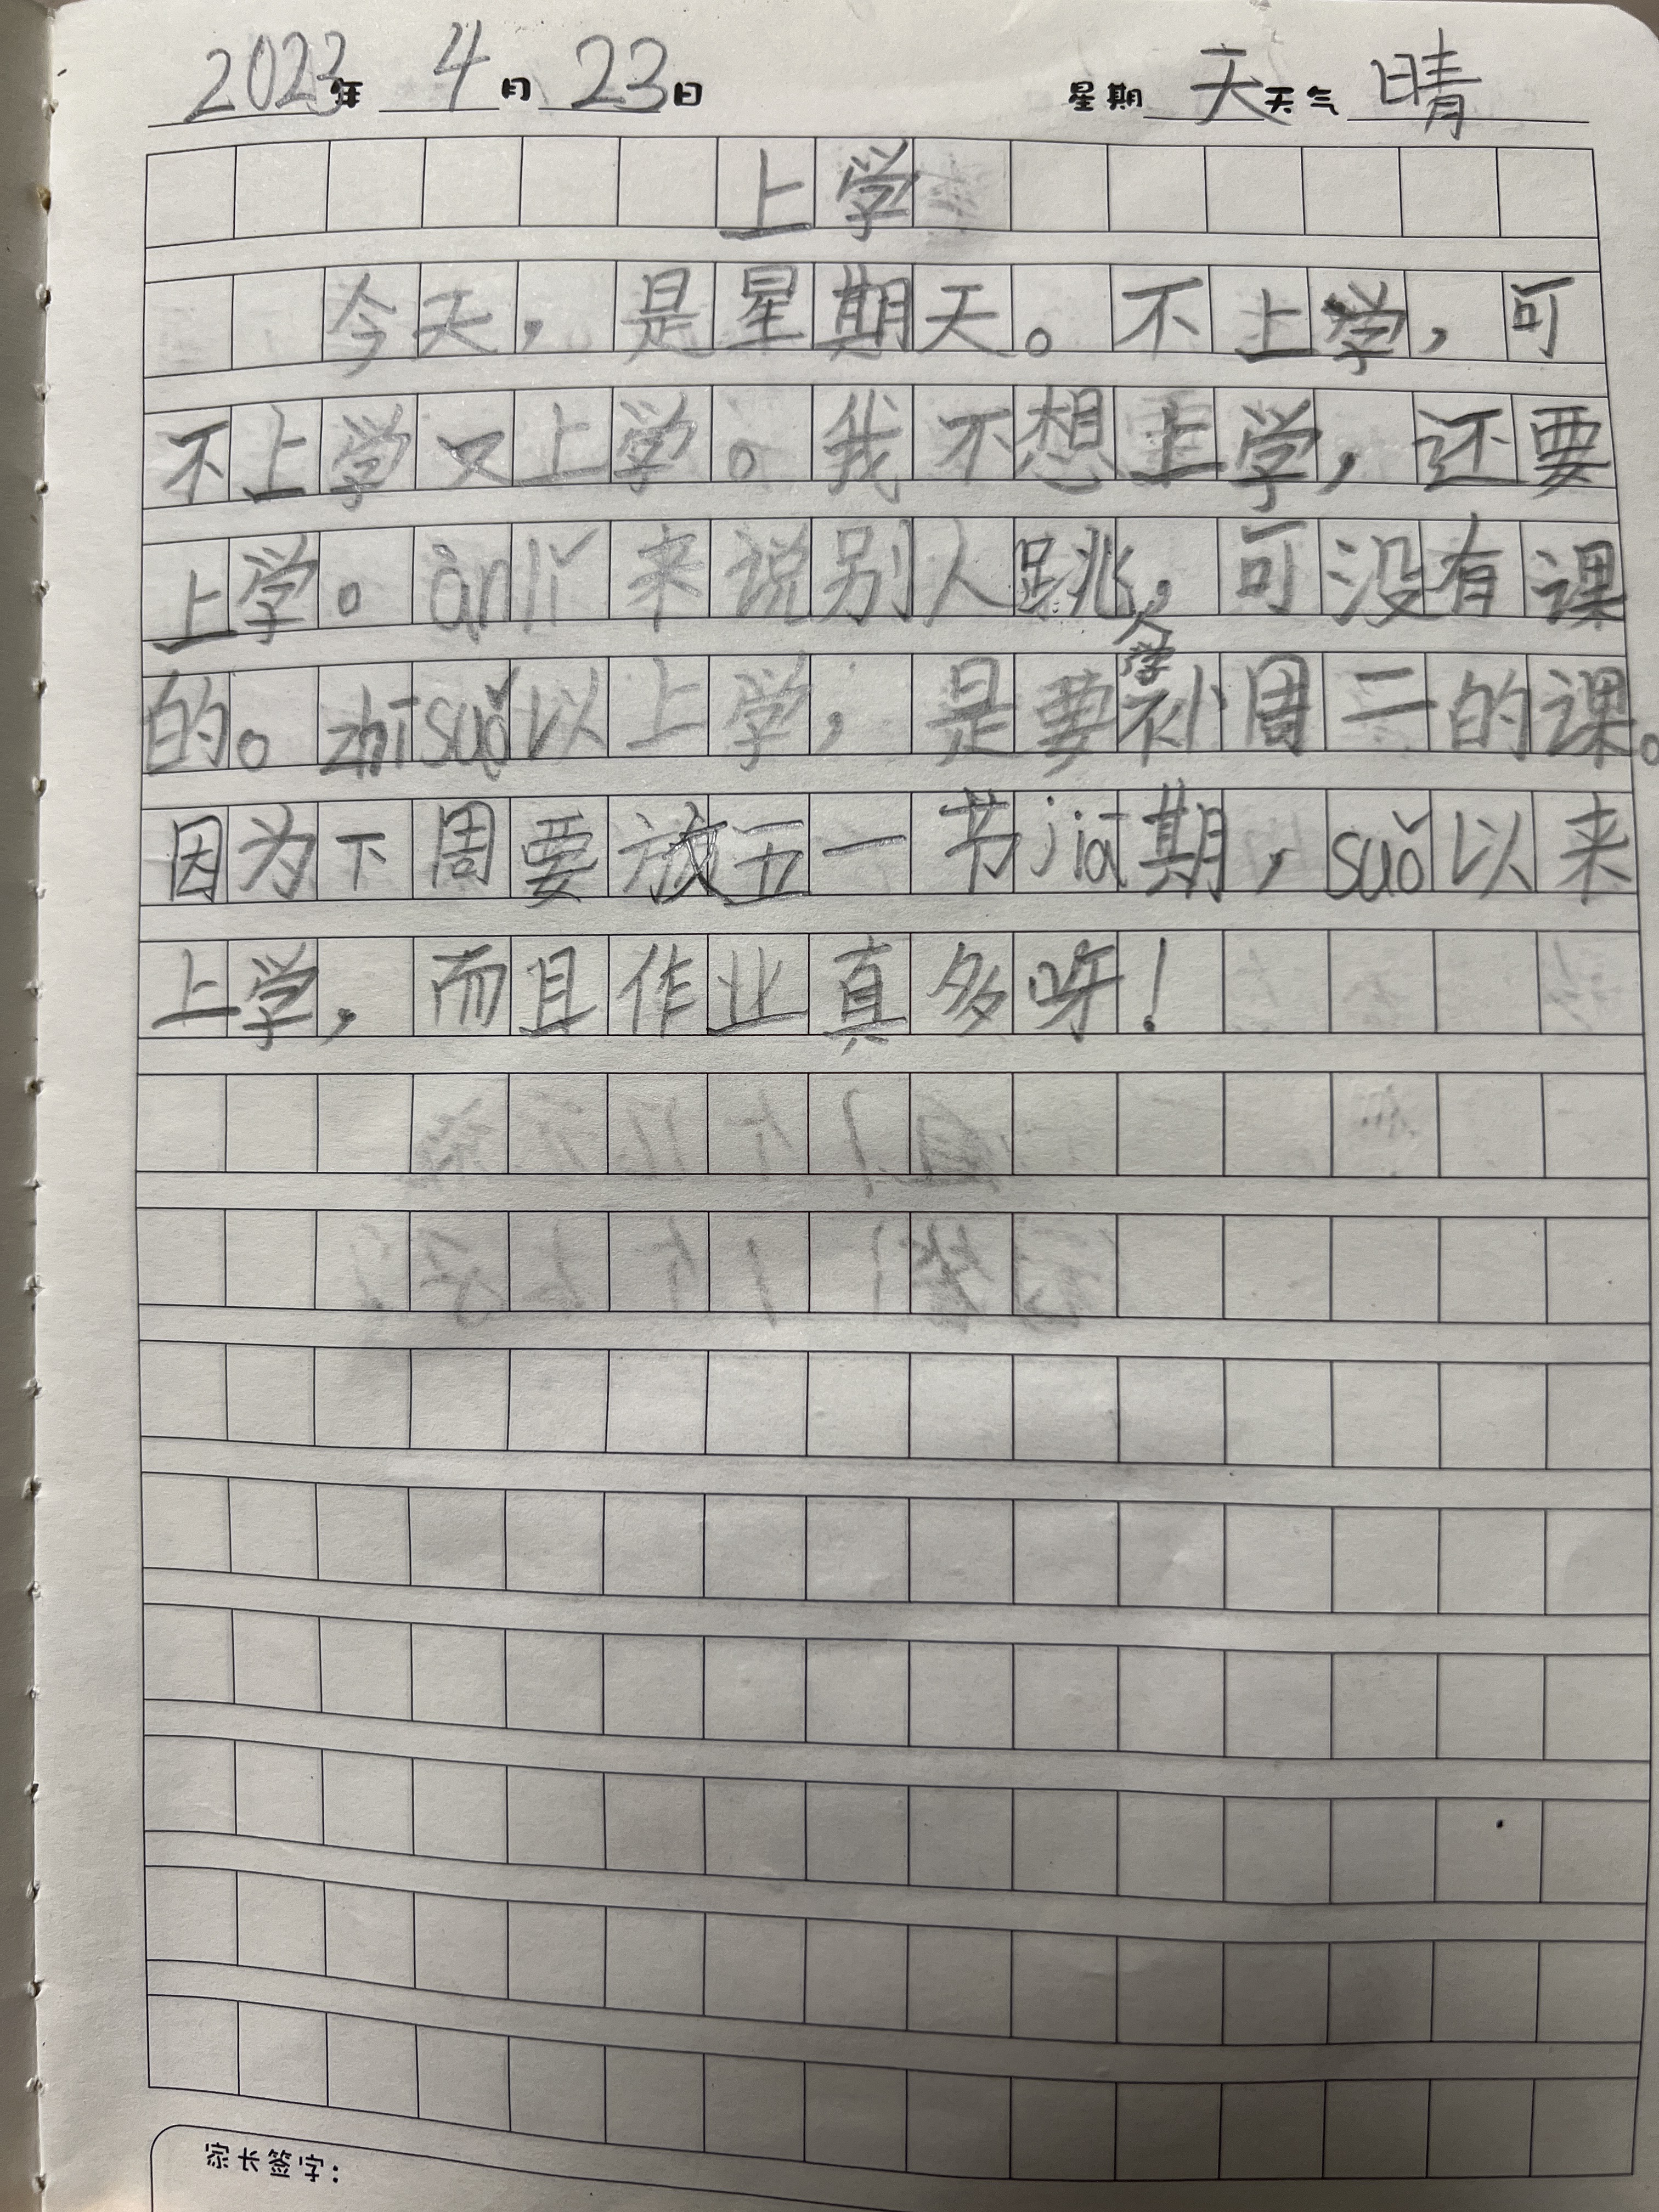 2023年 4月 23日 星期 天 天气 晴
上学
今天，是星期天。不上学，可
不上学又上学。我不想上学，还要
上学。àn lǐ来说别人跳，可没有课
的。zhī suǒ以上学，是要补周二的课。
人学
因为下周要放五一节jià期，suǒ以来
上学，而且作业真多呀！
家长签字：